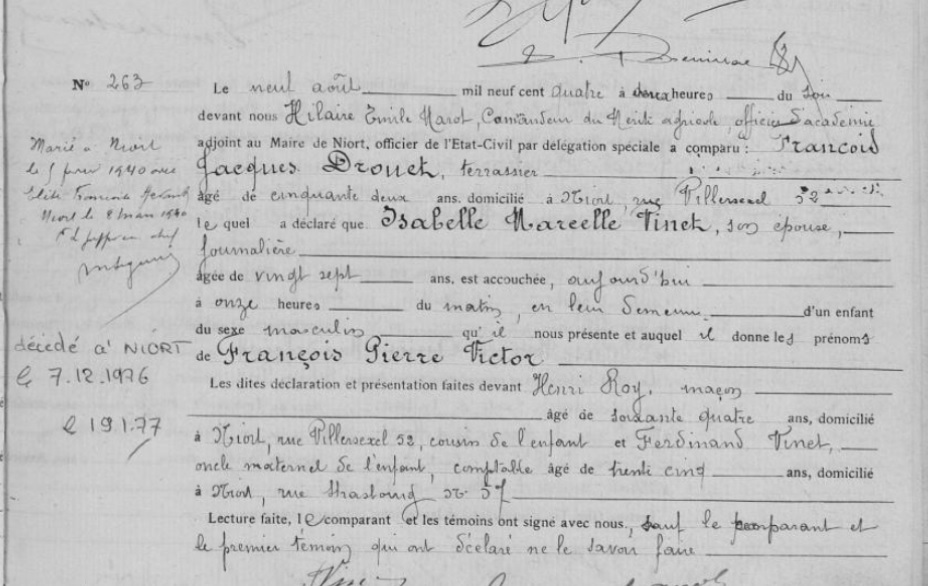 Nº 263
Le neuf août mil neuf cent quatre à heures du soir
devant nous Hilaire Emile Marot, Commandeur du Mérite agricole, officier d'académie
adjoint au Maire de Niort, officier de l'Etat-Civil par délégation spéciale a comparu : François
Jacques Drouet, terrassier
âgé de cinquante deux ans, domicilié à Niort, rue Villersexel 52
le quel a déclaré que Isabelle Marcelle Vinet, son épouse,
journalière
âgée de vingt sept ans, est accouchée, aujourd'hui
à onze heures du matin, en leur demeure d'un enfant
du sexe masculin qu'il nous présente et auquel il donne les prénoms
de François Pierre Victor
Les dites déclaration et présentation faites devant Henri Roy, maçon
âgé de soixante quatre ans, domicilié
à Niort, rue Villersexel 52, cousin de l'enfant et Ferdinand Vinet,
oncle maternel de l'enfant, comptable âgé de trente cinq ans, domicilié
à Niort, rue Strasbourg 57
Lecture faite, le comparant et les témoins ont signé avec nous, sauf le comparant et
le premier témoin qui ont déclaré ne le savoir faire
Marié à Niort
le 1940 avec
Niort le 2 mars 1940
décédé à NIORT
le 7.12.1976
le 19.1.77